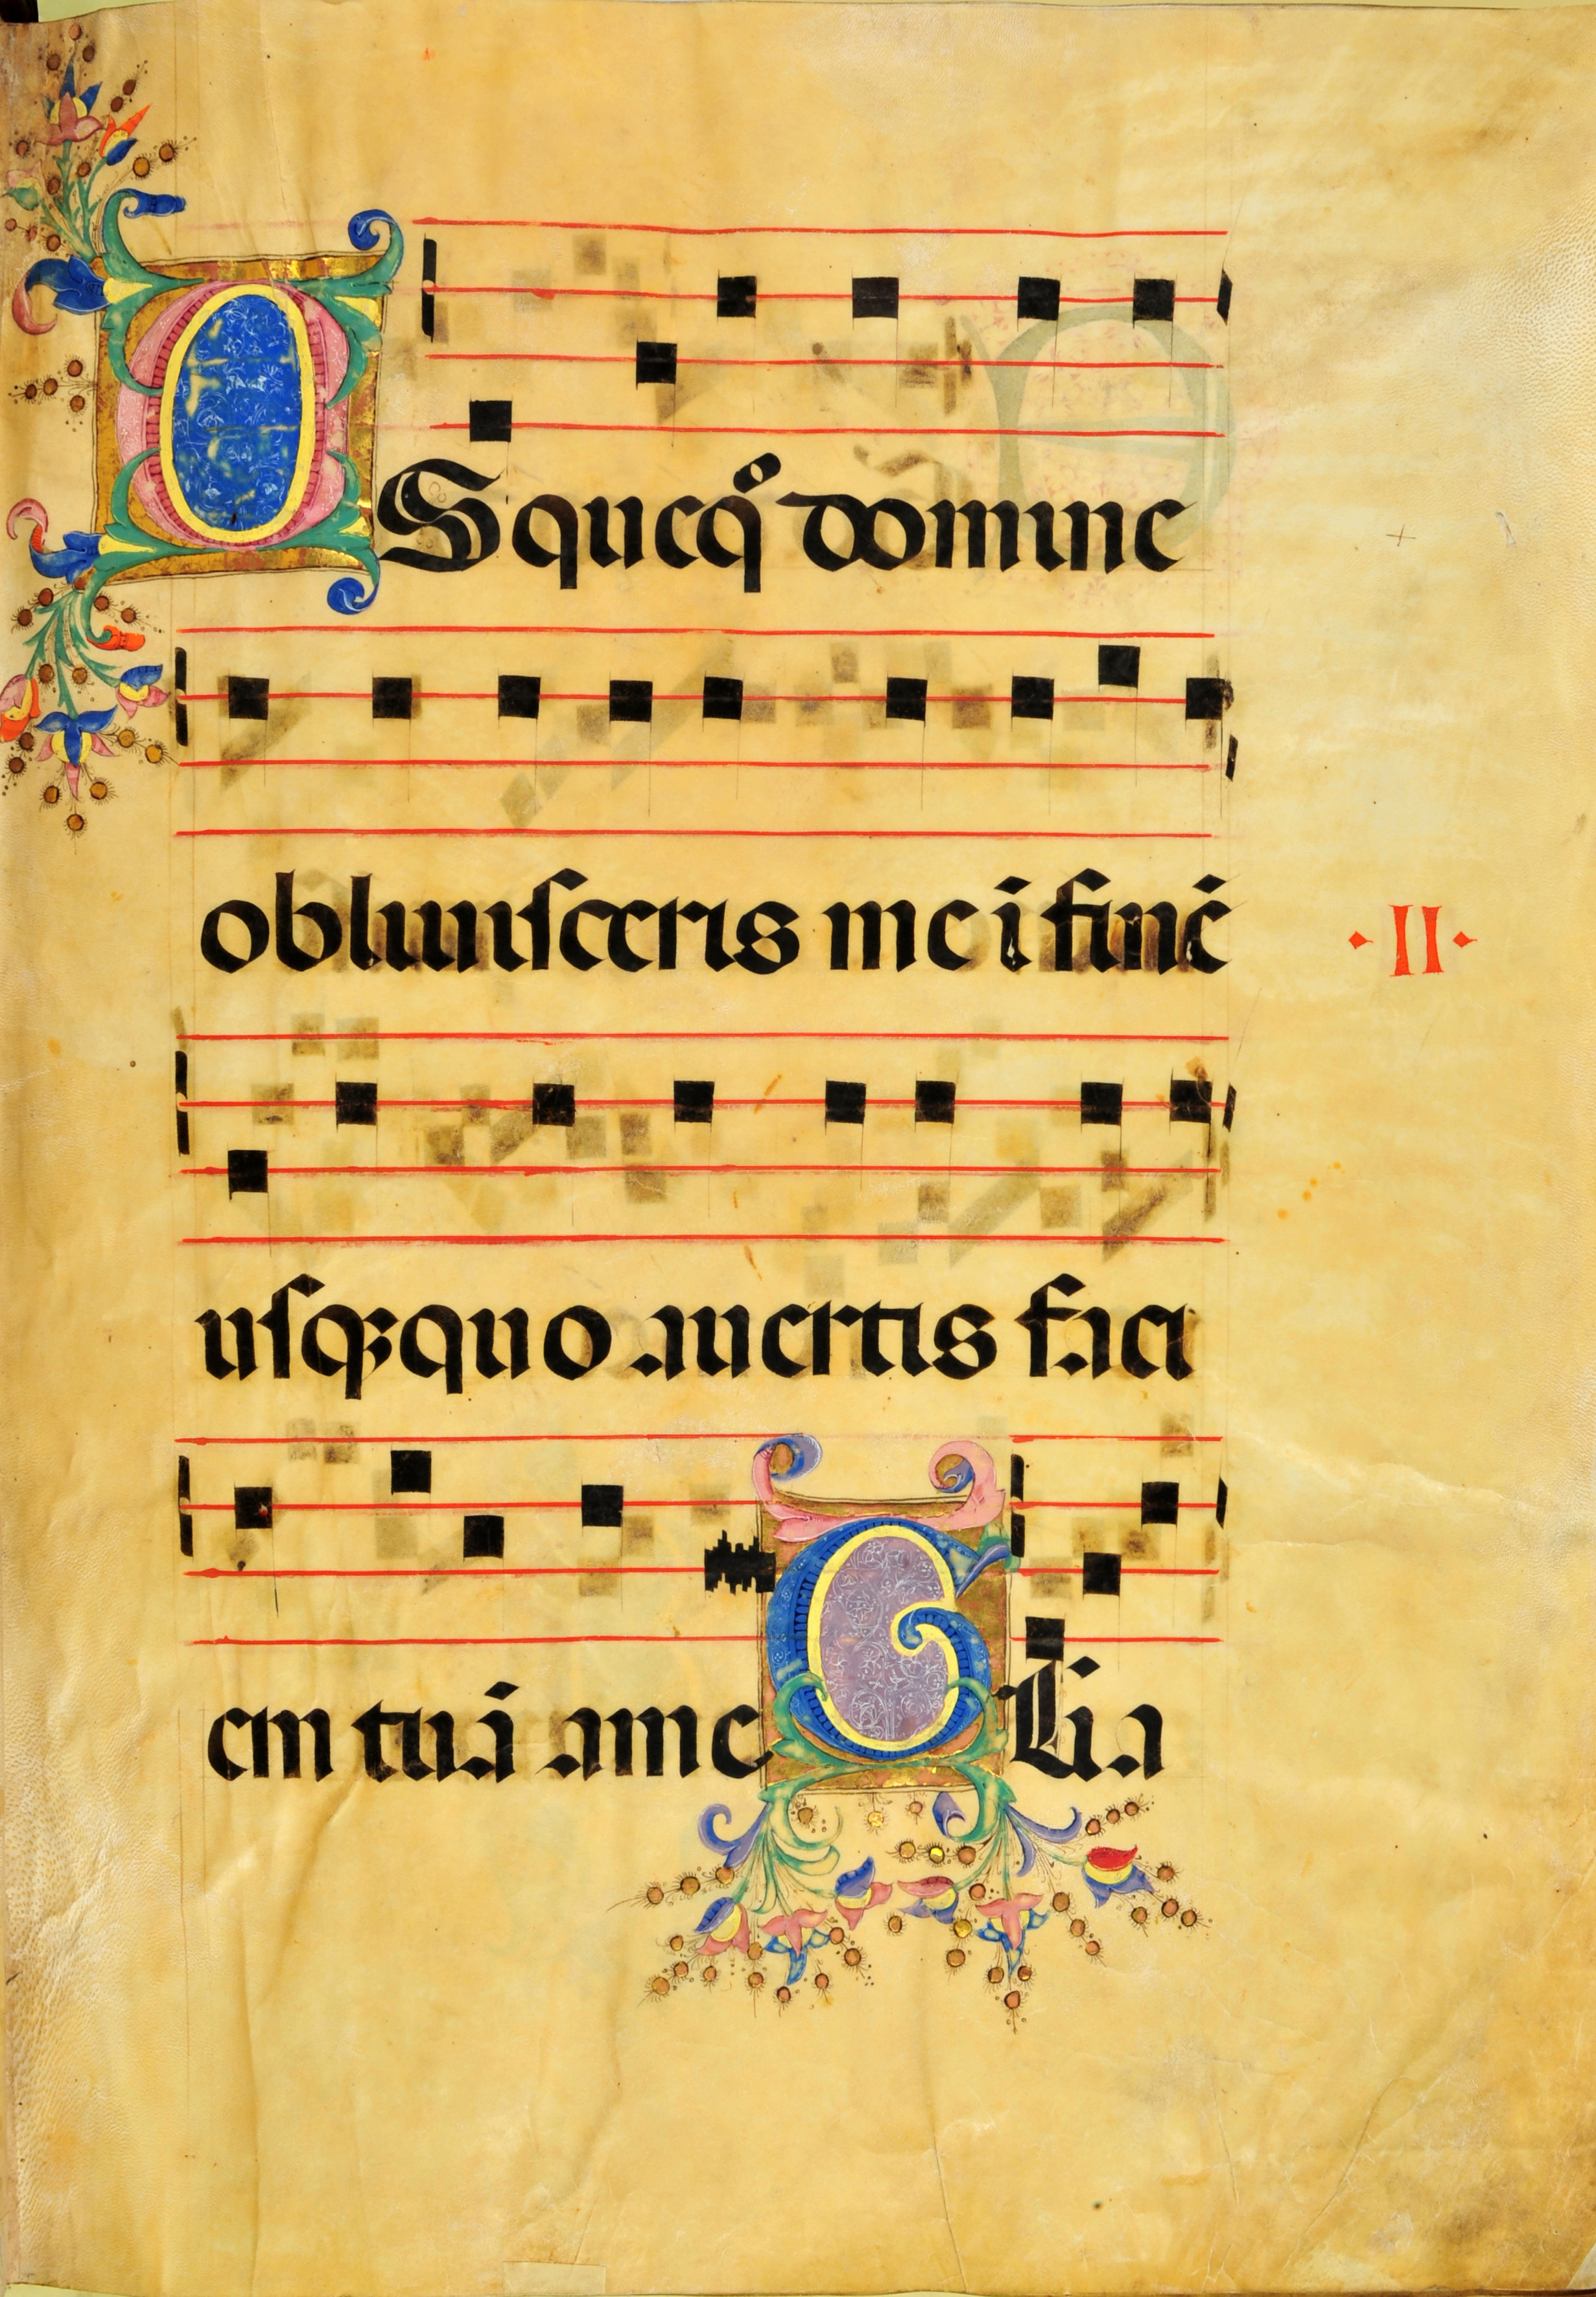 USqueqͦ domine
obliuiſceris me ī finē
II
uſqꝫquo auertis faci
em tuā a me Glīa